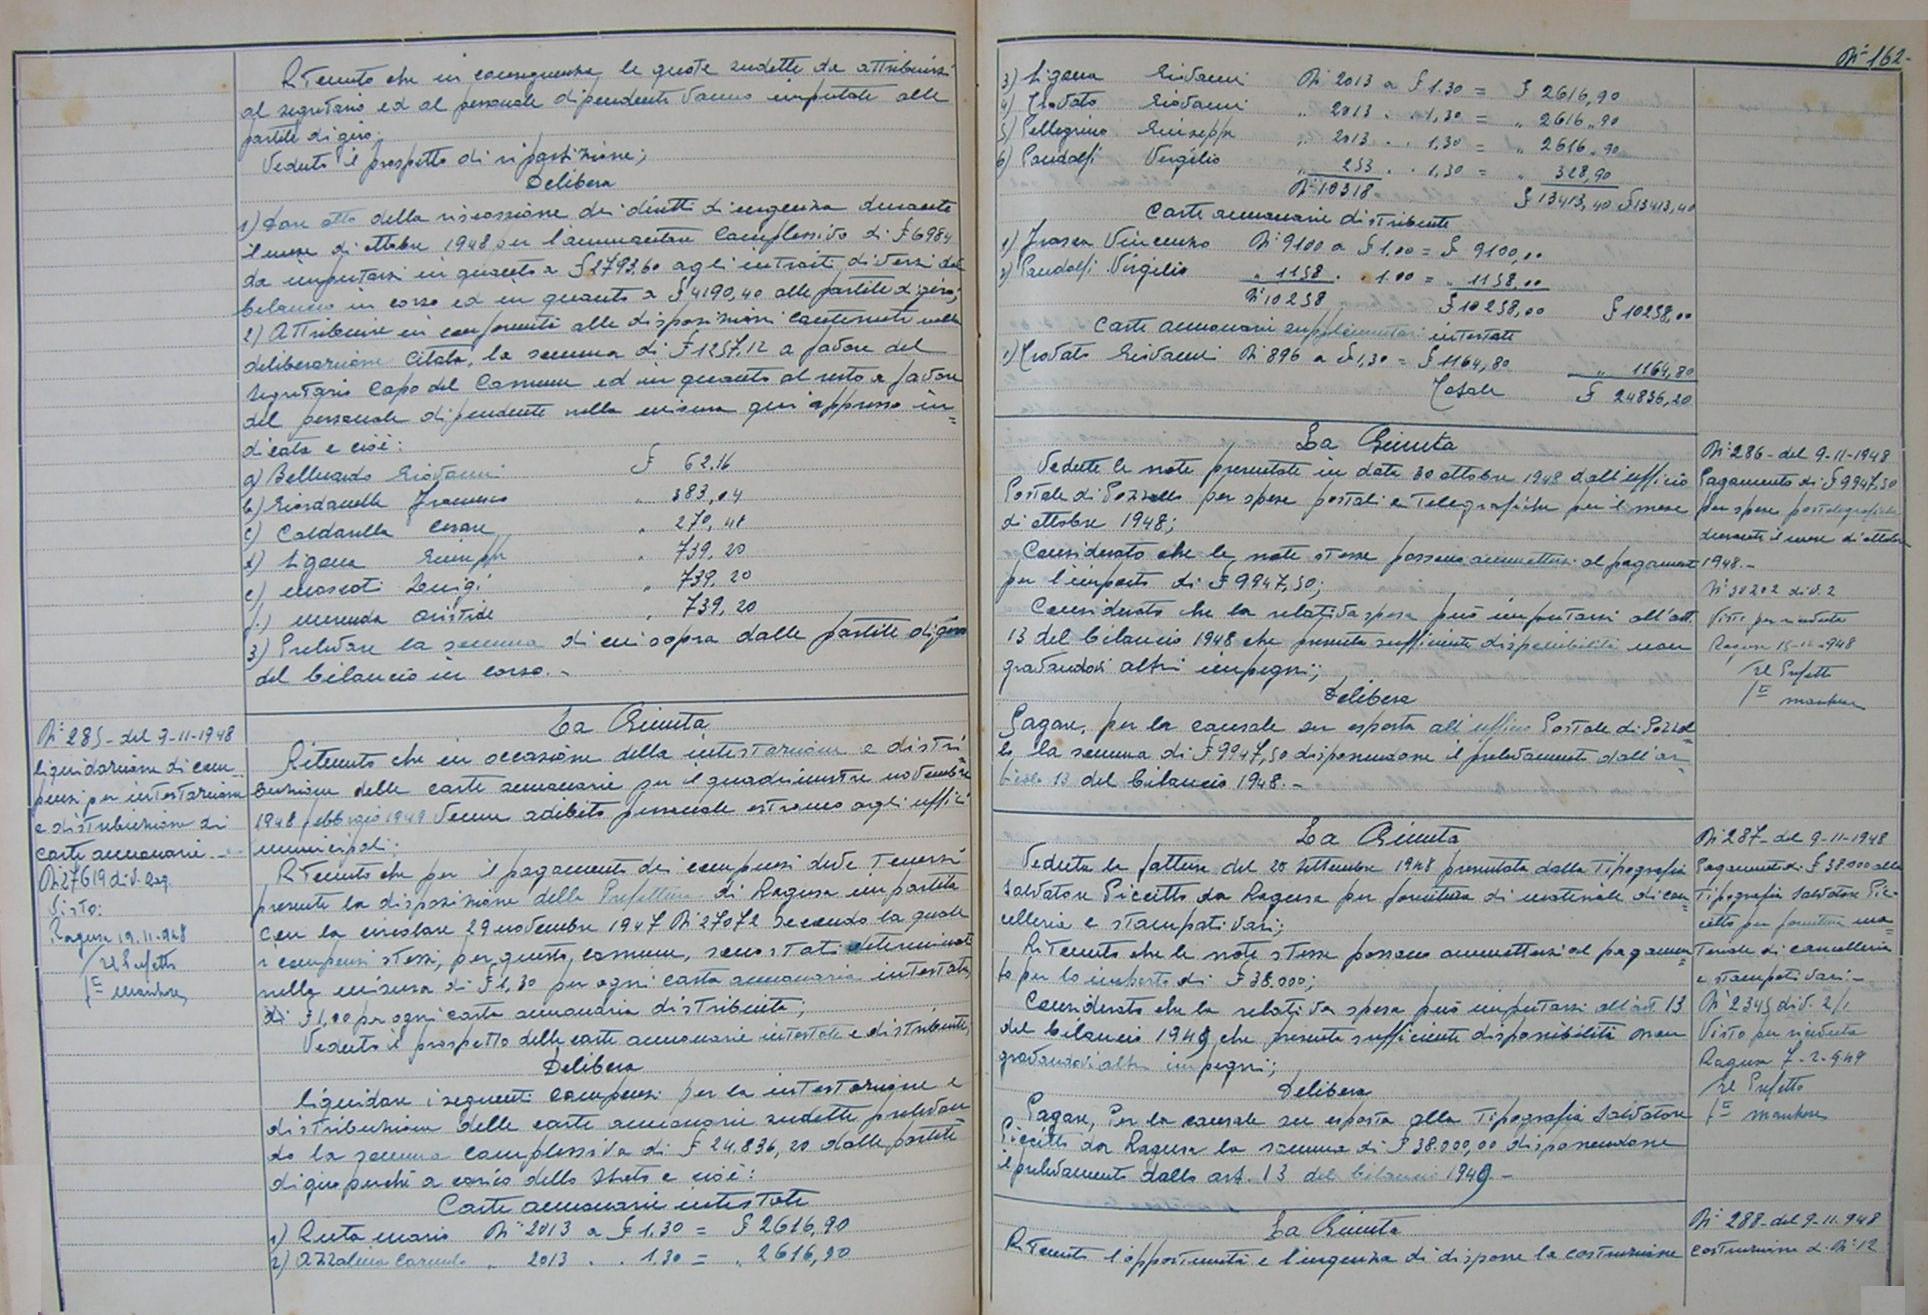 Ritenuto che in conseguenza le quote sudette da attribuirsi
al segretario ed al personale dipendente vanno imputate alle
partite di giro;
Veduto il prospetto di ripartizione;
Delibera
1) Dare atto della riscossione dei diritti d'urgenza durante
il mese di ottobre 1948 per l'ammontare complessivo di £ 6984
da imputarsi in quanto a £ 2793,60 agli introiti diversi del
bilancio in corso ed in quanto a £ 4190,40 alle partite di giro;
2) Attribuire in conformità alle disposizioni contenute nella
deliberazione citata, la somma di £ 1257,12 a favore del
Segretario Capo del Comune ed in quanto al resto a favore
del personale dipendente nella misura qui appresso in=
dicata e cioè:
a) Belluardo Giovanni £ 62.16
b) Giordanella Francesco „ 383,04
c) Caldarella Cesare „ 270,48
d) Ligama Giuseppe „ 739,20
e) Mascoti Luigi „ 739,20
f.) Merenda Aristide „ 739,20
3) Prelevare la somma di cui sopra dalle partite di giro
del bilancio in corso. -
N° 285 - del 9-11-1948
liquidazione di com=
pensi per intestazione
e distribuzione di
carte annonarie -
N° 27619 div. Rag.
Visto:
Ragusa 19.11.948
Il Prefetto
La Giunta
Ritenuto che in occasione della intestazione e distri=
buzione delle carte annonarie per il quadrimestre novembre
1948 febbraio 1949 venne adibito personale estraneo agli uffici
municipali;
Ritenuto che per il pagamento dei compensi deve tenersi
presente la disposizione della Prefettura di Ragusa impartita
con la circolare 29 novembre 1947 N° 27072 secondo la quale
i compensi stessi, per questo comune, sono stati determinati
nella misura di £ 1,30 per ogni carta annonaria intestata,
di £ 1,00 per ogni carta annonaria distribuita;
Veduto il prospetto delle carte annonarie intestate e distribuite,
Delibera
liquidare i seguenti compensi per la intestazione e
distribuzione delle carte annonarie sudette prelevan
do la somma complessiva di £ 24.836,20 dalle partite
di giro perchè a carico dello Stato e cioè:
Carte annonarie intestate
1) Ruta Mario N° 2013 a £ 1.30 = £ 2616,90
2) Azzolina Carmelo „ 2013 „ „ 1.30 = „ 2616,90
N° 162-
3) Ligama Giovanni N° 2013 a £ 1.30 = £ 2616,90
4) Trovato Giovanni „ 2013 „ „ 1,30 = „ 2616,90
5) Pellegrino Giuseppe „ 2013 „ „ 1,30 = „ 2616,90
6) Pandolfi Virgilio „ 253 „ „ 1,30 = „ 328,90
N° 10318 £ 13413,40 £ 13413,40
Carte annonarie distribuite
1) Frasca Vincenzo N° 9100 a £ 1.00 = £ 9100,00
2) Pandolfi Virgilio „ 1158 „ „ 1.00 = „ 1158,00
N° 10258 £ 10258,00 £ 10258,00
Carte annonarie supplementari intestate
1) Trovato Giovanni N° 896 a £ 1,30 = £ 1164,80 „ 1164,80
Totale £ 24836,20
La Giunta
Vedute le note presentate in data 30 ottobre 1948 dall'ufficio
Postale di Pozzallo per spese postali e telegrafiche per il mese
di ottobre 1948;
Considerato che le note stesse possono ammettersi al pagament
per l'importo di £ 9947,50;
Considerato che la relativa spesa può imputarsi all'art.
13 del bilancio 1948 che presenta sufficiente disponibilità non
gravandovi altri impegni;
Delibera
Pagare, per la causale su esposta all'ufficio Postale di Pozzal=
lo la somma di £ 9947,50 disponendone il prelevamento dall'ar=
ticolo 13 del bilancio 1948. -
N° 286 - del 9-11-1948
Pagamento di £ 9947,50
per spese postelegrafiche
durante il mese di ottobre
1948. -
N° 30202 div. 2
Visto per ricevuta
Ragusa 15-11-948
Il Prefetto
La Giunta
Veduta la fattura del 20 settembre 1948 presentata dalla Tipografia
Salvatore Piccitto da Ragusa per fornitura di materiale di can=
celleria e stampati vari;
Ritenuto che le note stesse possono ammettersi al pagamen=
to per lo importo di £ 38.000;
Considerato che la relativa spesa può imputarsi all'art. 13
del bilancio 1949 che presenta sufficiente disponibilità non
gravandovi altri impegni;
Delibera
Pagare, Per la causale su esposta alla Tipografia Salvatore
Piccitto da Ragusa la somma di £ 38.000,00 disponendone
il prelevamento dallo art. 13 del bilancio 1949. -
N° 287 del 9-11-1948
Pagamento di £ 38.000 alla
Tipografia Salvatore Pic=
citto per fornitura ma=
teriale di cancelleria
e stampati vari -
N° 2345 div. 2/1
Visto per ricevuta
Ragusa 7-2-949
Il Prefetto
La Giunta
Ritenuto l'opportunità e l'urgenza di disporre la costruzione
N° 288 - del 9-11-948
Costruzione di N° 12